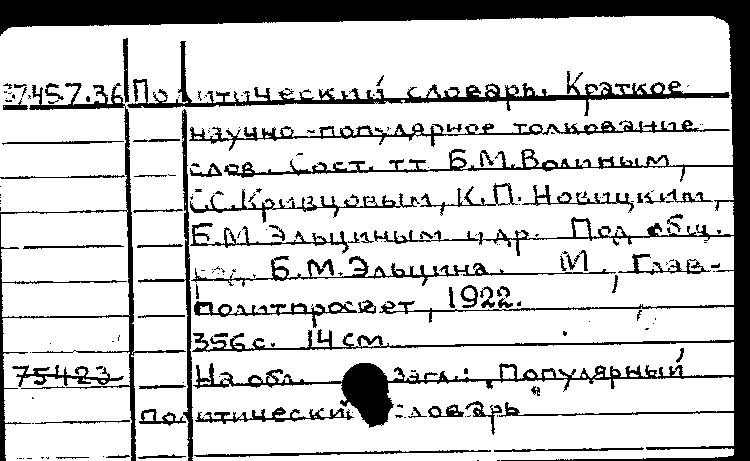 37457.36 Политический словарь. Краткое
научно-популярное толкование
слов. Сост. т.т. Б.М.Волиным,
С.С.Кривцовым, К.П.Новицким,
Б.М.Эльциным и др. Под общ.
ред. Б.М.Эльцина. М., Глав-
политпросвет, 1922.
356с. 14 см
75423 На обл. загл.: "Популярный
политический словарь"